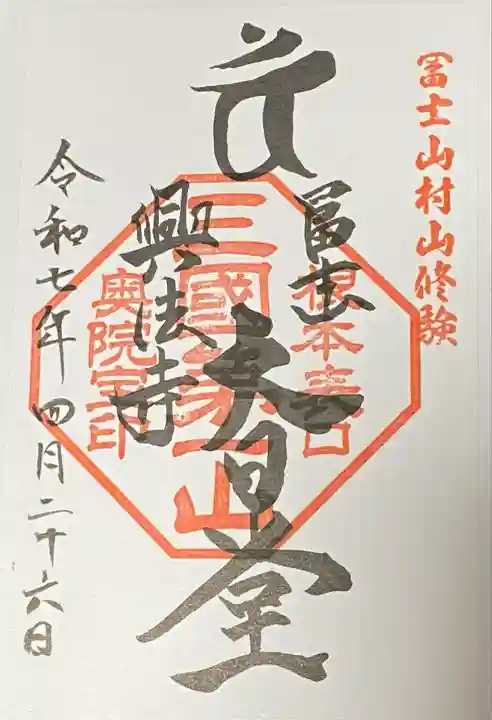 冨士山村山修験
冨士
大日堂
興法寺
根本宮
三國第一山
奥院宝印
令和七年四月二十六日